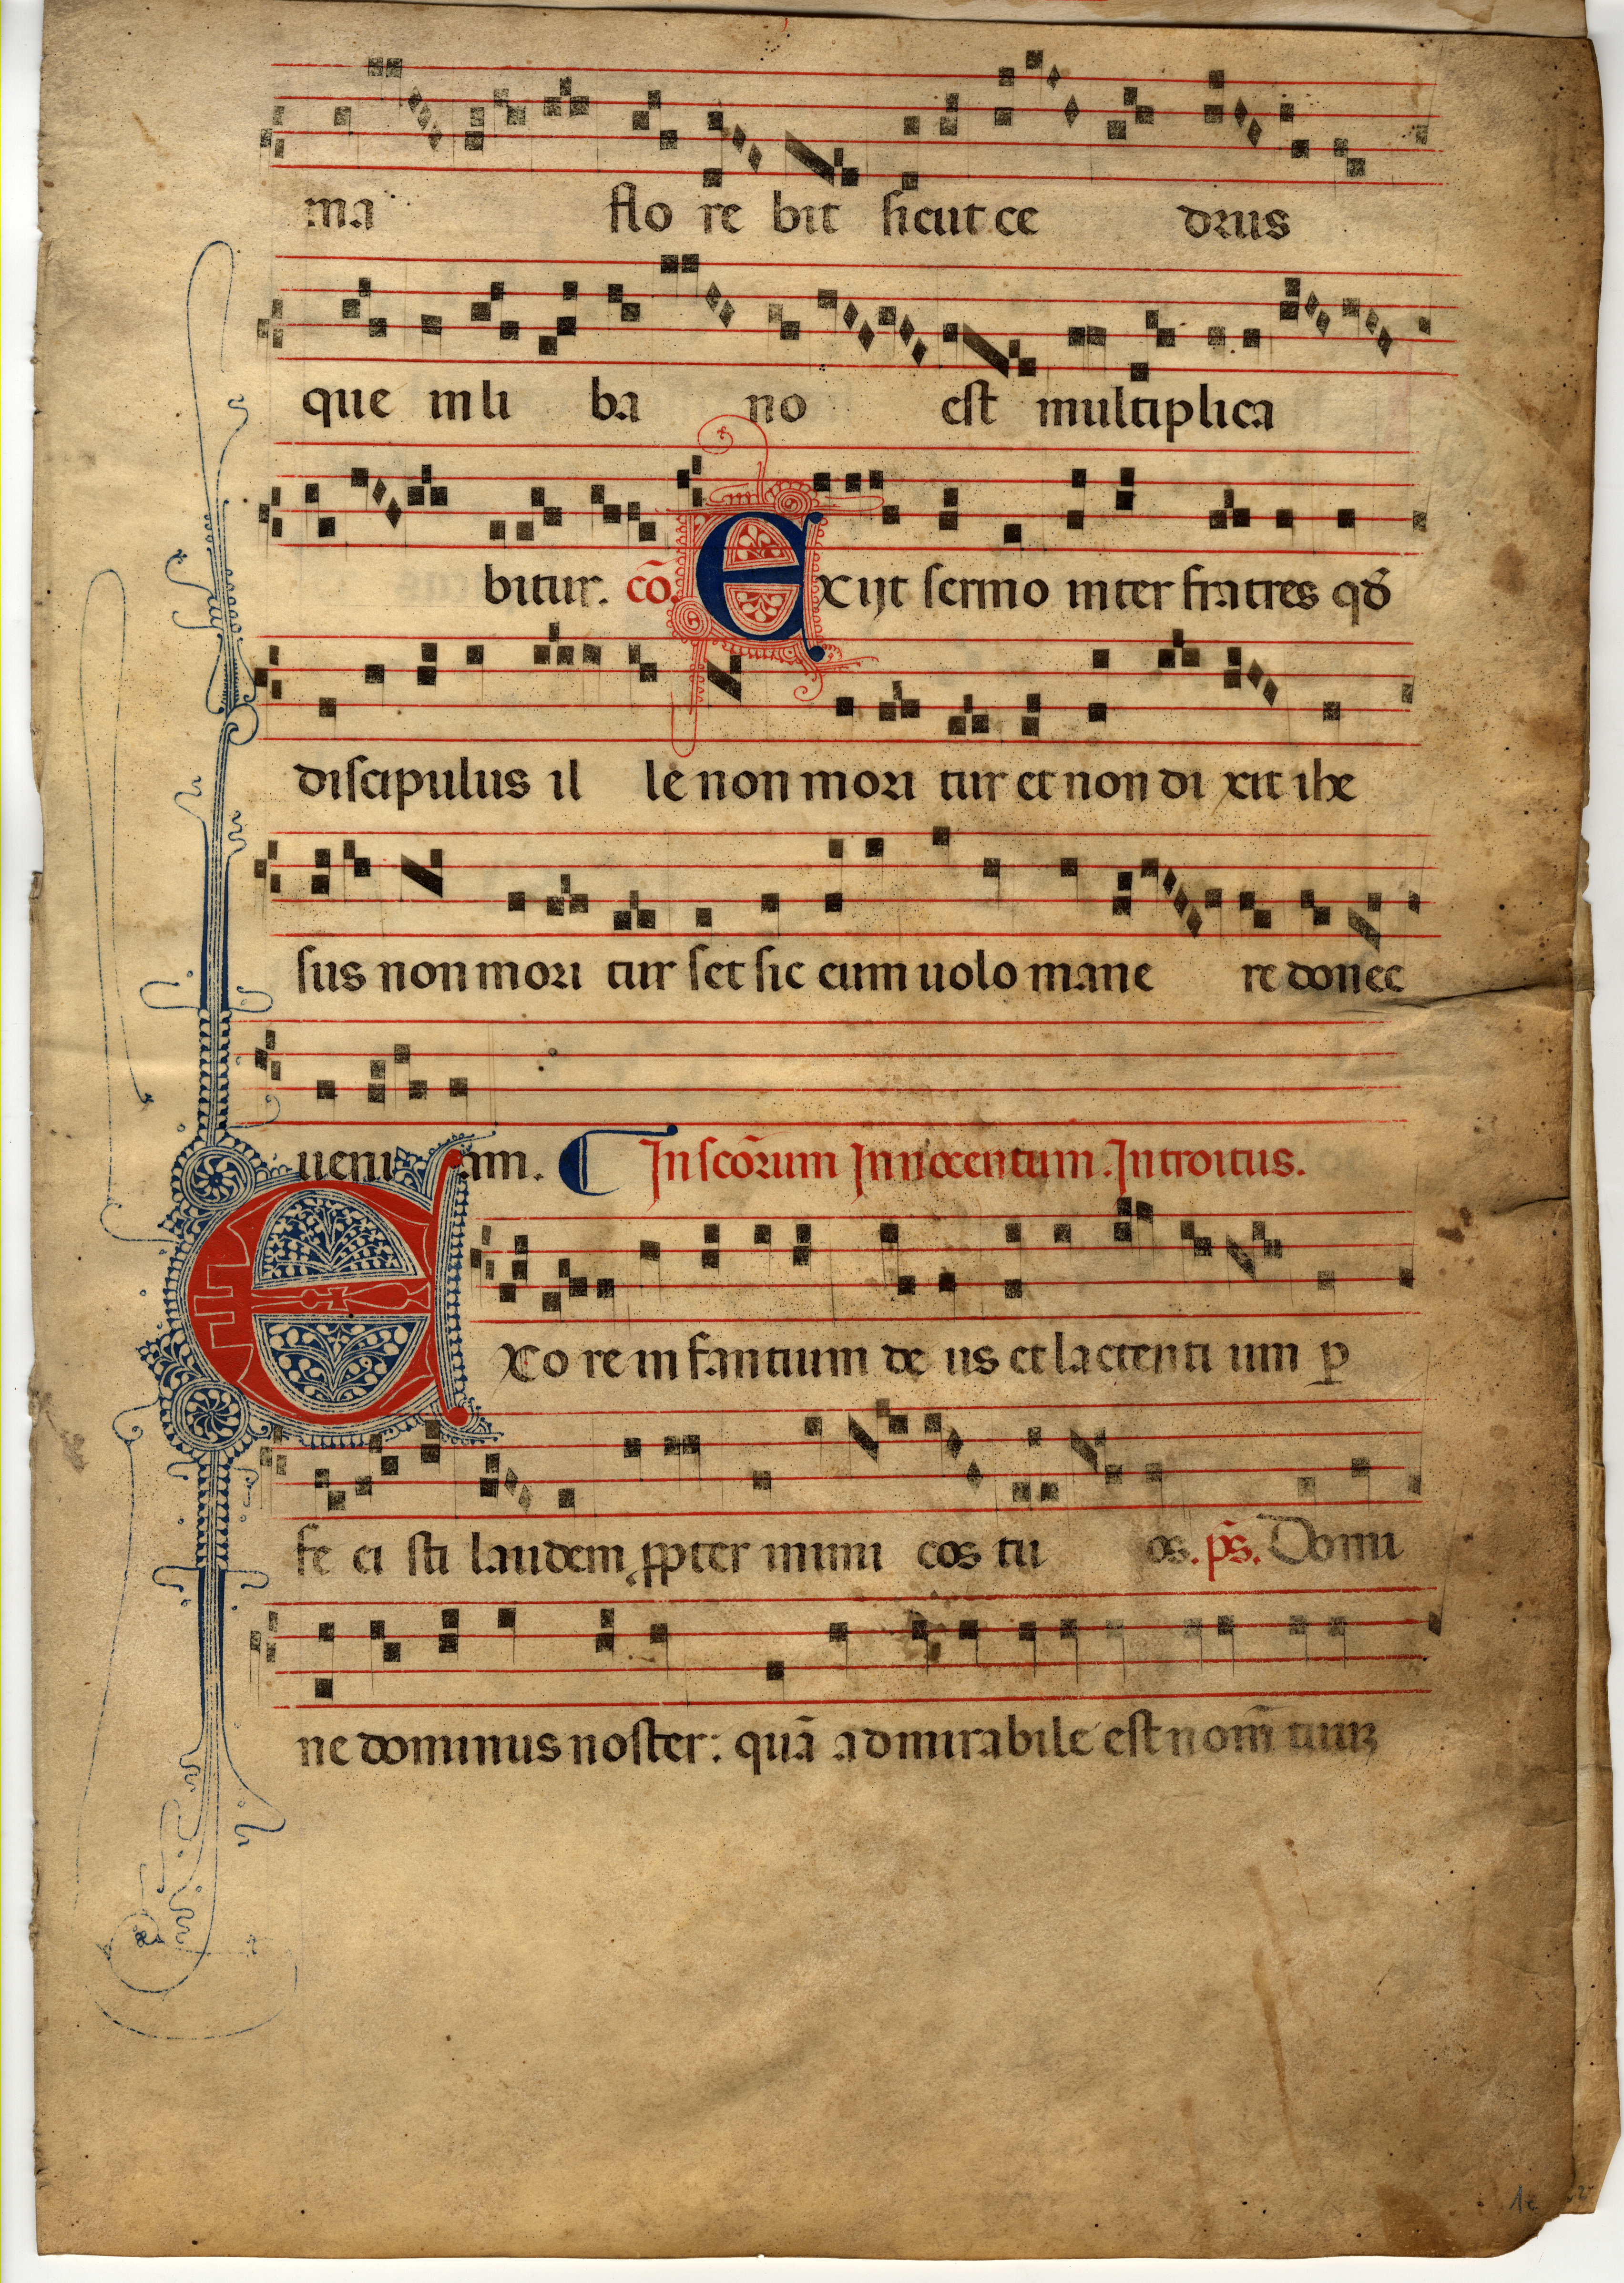 ma flo re bit sicut ce drus
que in li ba no est multiplica
bitur. cō. Exijt sermo inter fratres qđ
discipulus il le non mori tur et non di xit ihe
sus non mori tur set sic eum uolo mane re donec
ueni am. In scōrum Innocentum. Introitus.
Exo re infantium de us et lactenti um ꝑ
fe ci sti laudem ꝓpter inimi cos tu os. ps̄. Domi
ne dominus noster: quā admirabile est nom̄ tuuꝫ